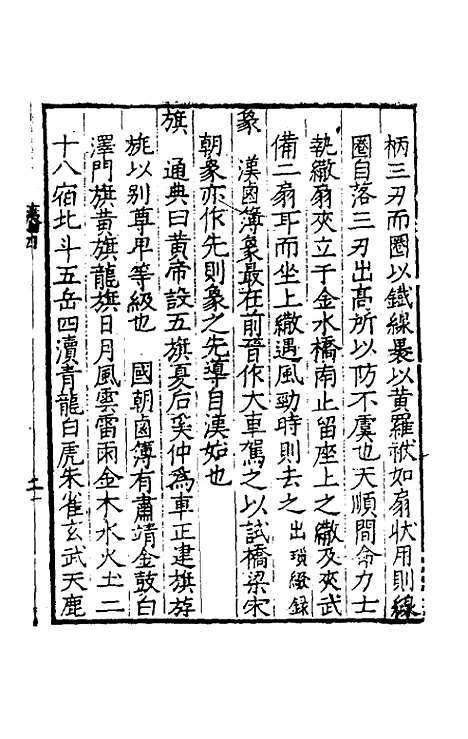 柄三刃而圈以鐵線裹以黄羅袱如扇状用則線
圈自落三刃出髙所以防不虞也天順間命力士
執繖扇夾立于金水橋南止留座上之繖及夾武
備二扇耳而坐上繖遇風勁時則去之出瑣綴録
象
漢鹵簿象最在前晉作大車駕之以試橋梁宋
朝象亦作先則象之先導自漢始也
旗
通典曰黄帝設五旗夏后奚仲為車正建旗斿
旄以别尊卑等級也 國朝鹵簿有肅靖金鼓白
澤門旗黄旗龍旗日月風雲雷雨金木水火土二
十八宿北斗五岳四瀆青龍白虎朱雀玄武天鹿